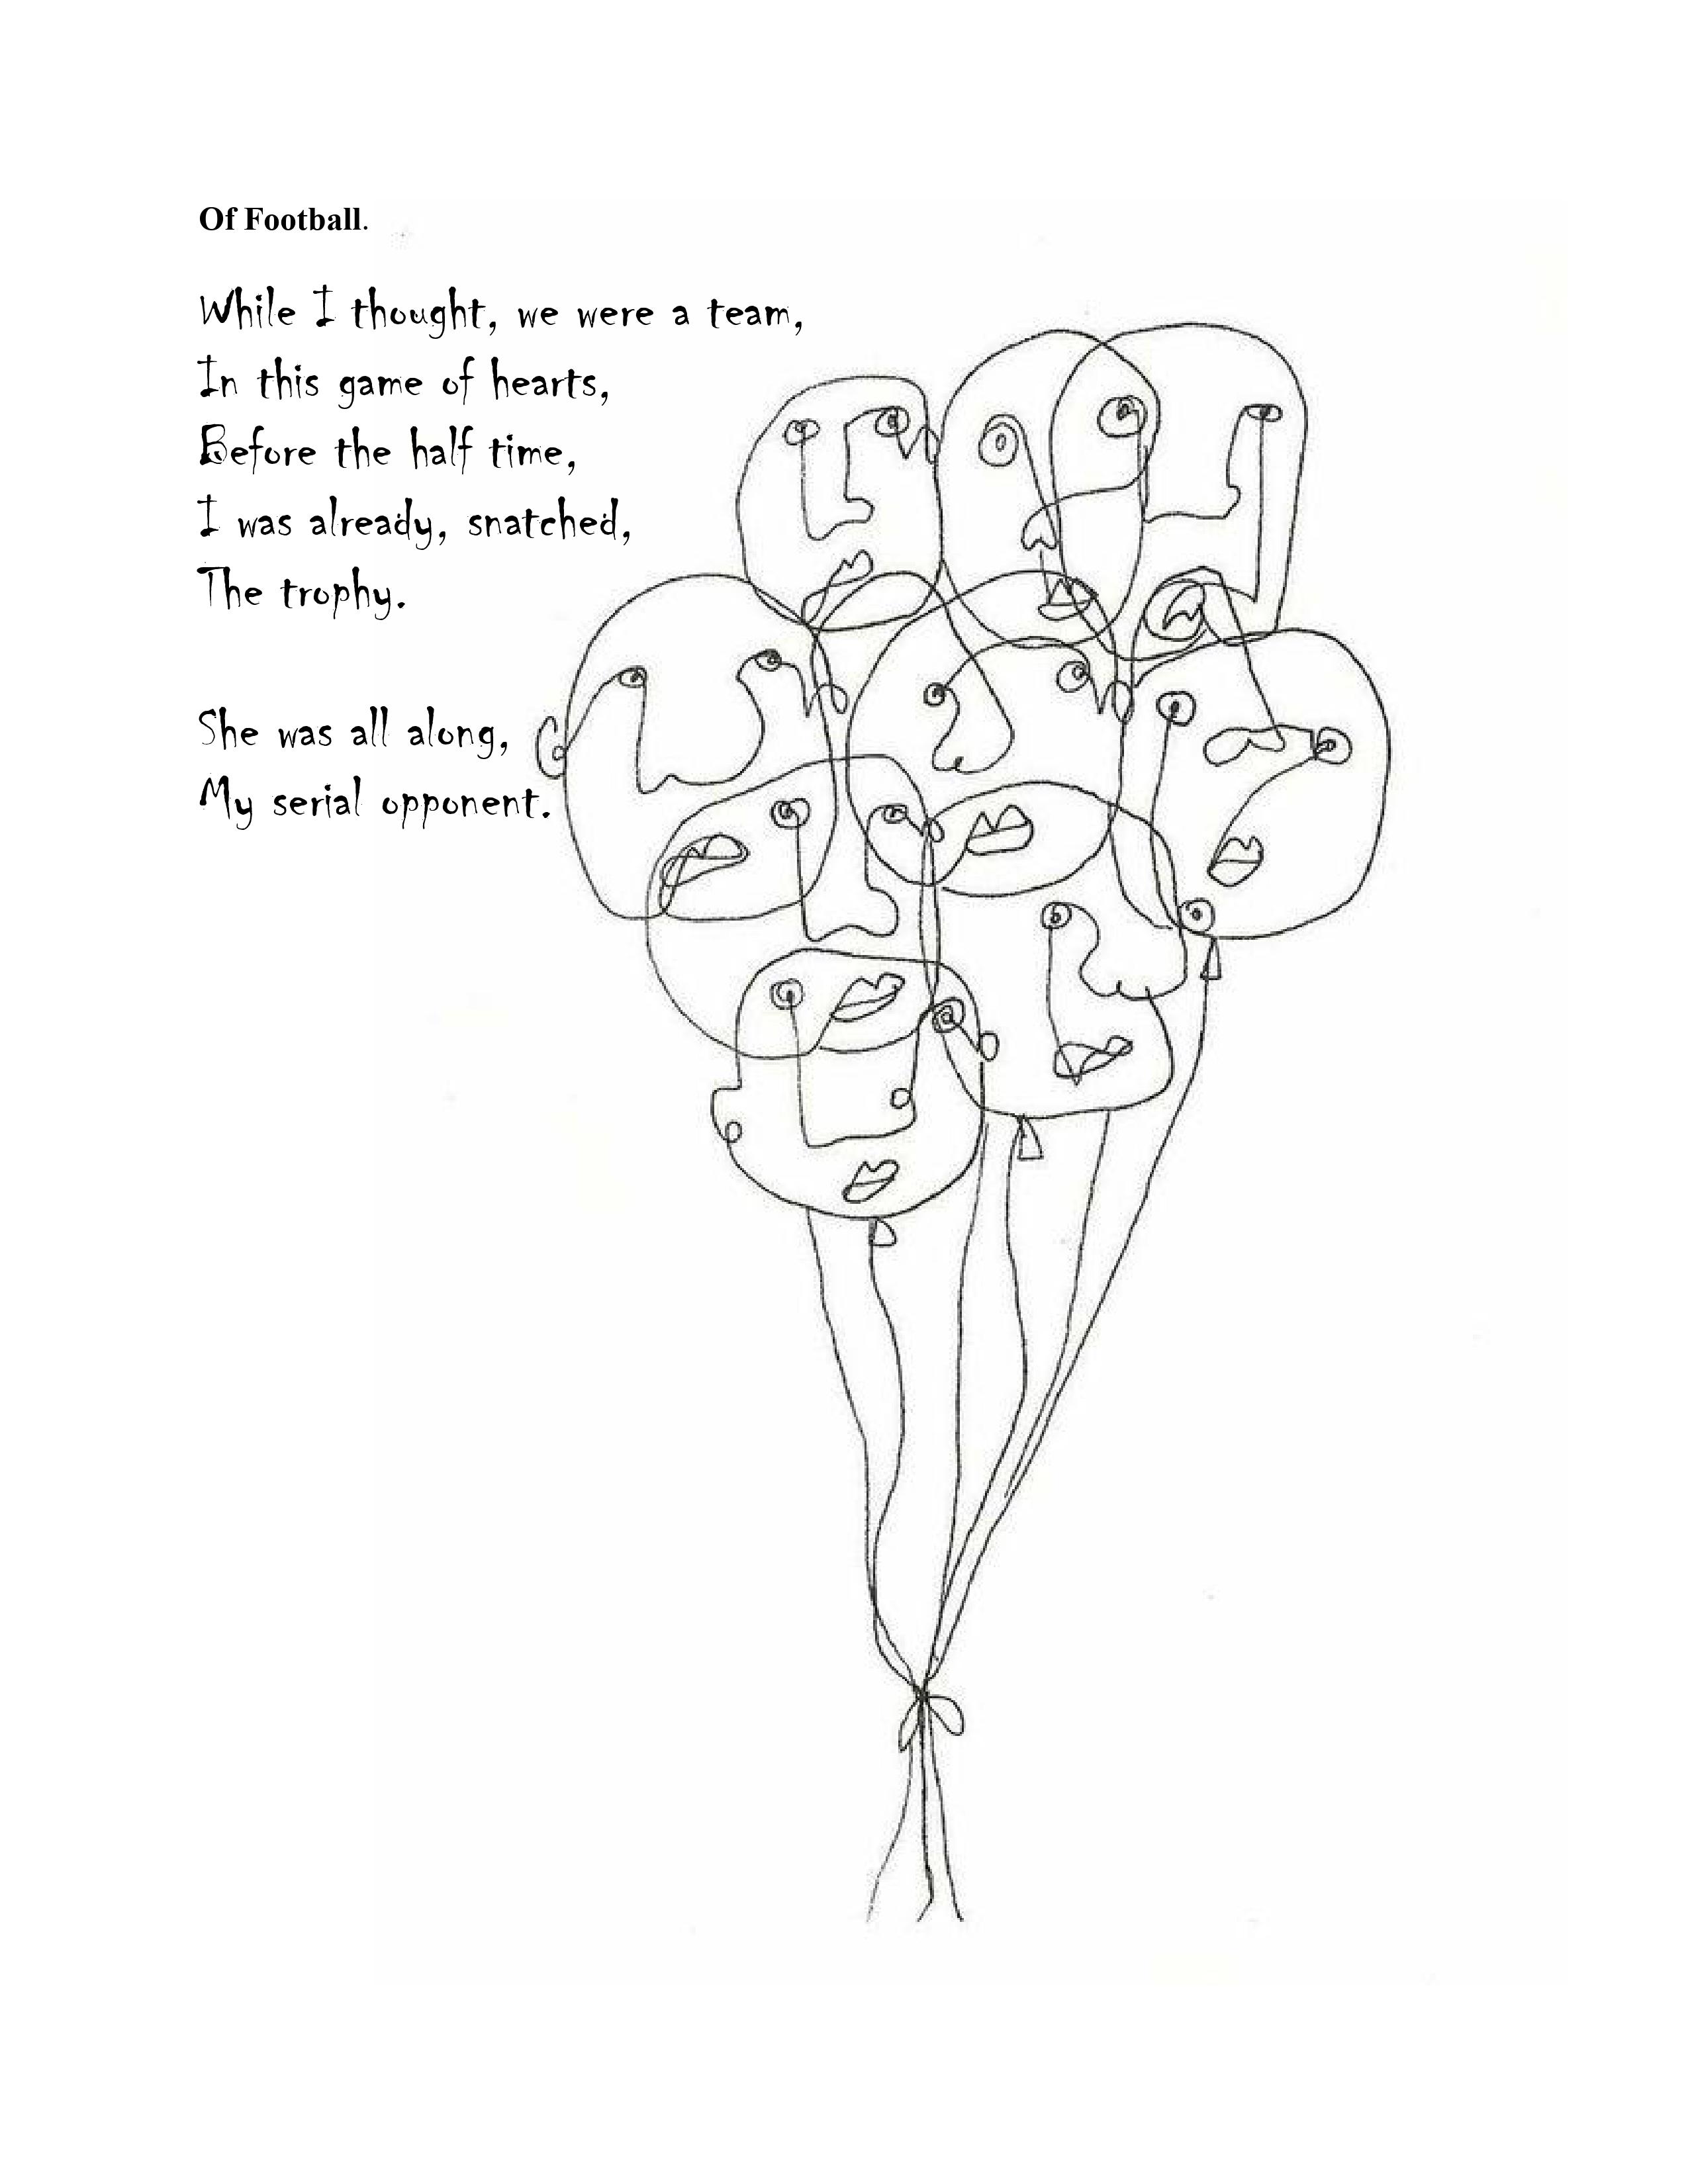 Of Football.
While I thought, we were a team,
In this game of hearts,
Before the half time,
I was already, snatched,
The trophy.
She was all along,
My serial opponent.